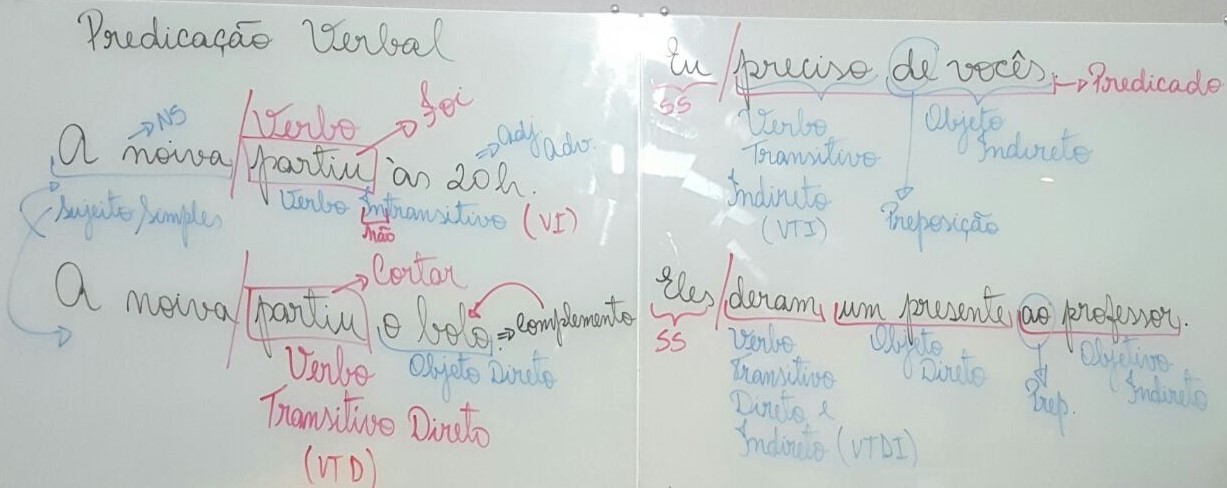 Predicação Verbal
NS
Verbo
foi
adj adv.
A noiva partiu às 20h.
Sujeito Simples
Verbo Intransitivo (VI)
não
Cortar
A noiva partiu o bolo complemento
Verbo
Transitivo Direto
(VTD)
Objeto Direto
Eu preciso de vocês Predicado
SS
Verbo
Transitivo
Indireto
(VTI)
Preposição
Objeto
Indireto
Eles deram um presente ao professor.
SS
Verbo
Transitivo
Direto e
Indireto (VTDI)
Objeto
Direto
Prep.
Objetivo
Indireto